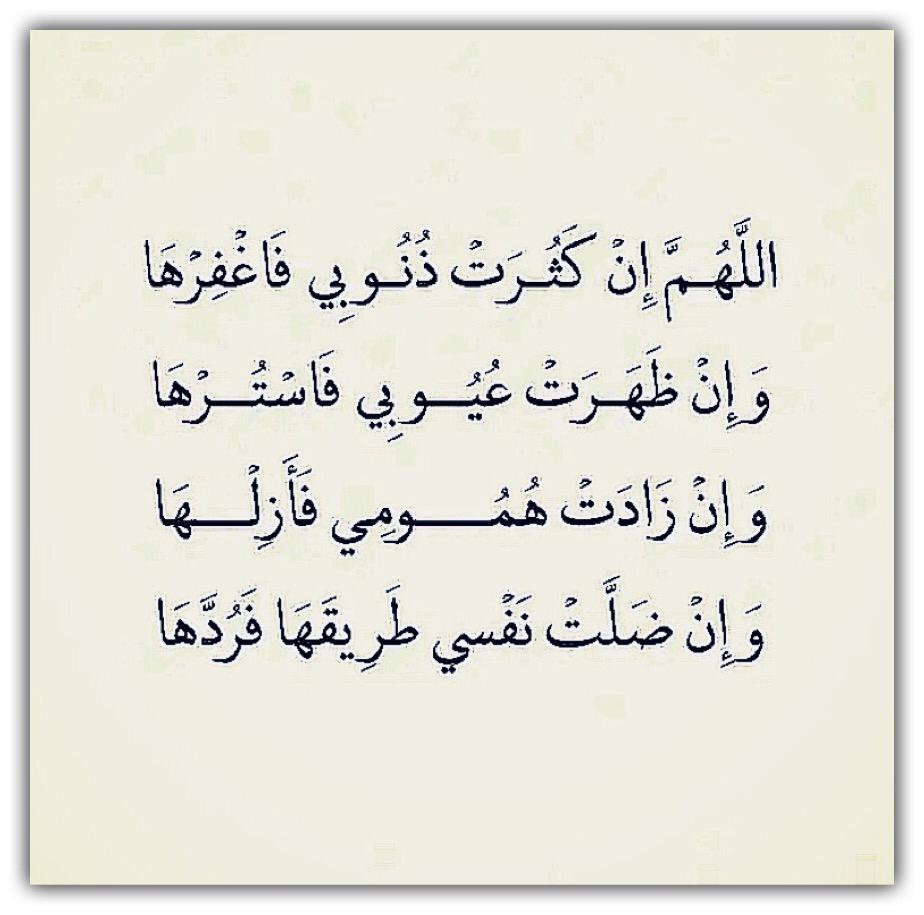 اللَّهُمَّ إِنْ كَثُرَتْ ذُنُوبِي فَاغْفِرْهَا
وَإِنْ ظَهَرَتْ عُيُوبِي فَاسْتُرْهَا
وَإِنْ زَادَتْ هُمُومِي فَأَزِلْهَا
وَإِنْ ضَلَّتْ نَفْسِي طَرِيقَهَا فَرُدَّهَا